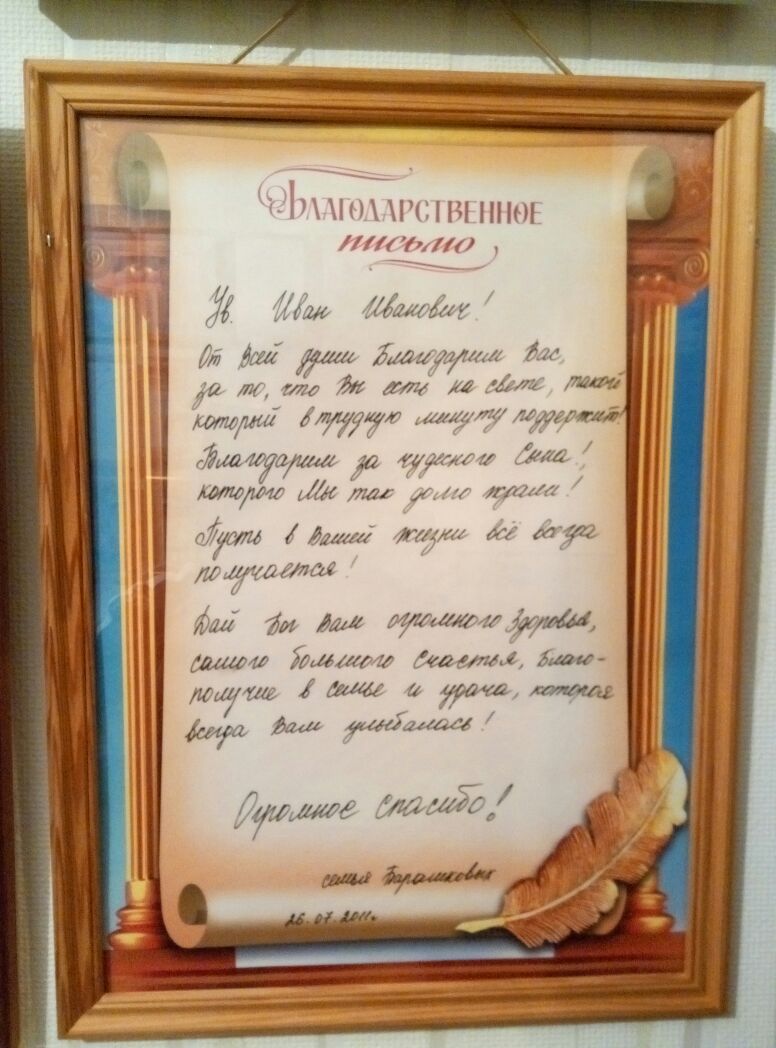 Благодарственное
письмо
Ув. Иван Иванович!
От Всей души Благодарим Вас,
за то, что Вы есть на свете, такой
который в трудную минуту поддержит!
Благодарим за чудесного Сына!,
которого Мы так долго ждали!
Пусть в Вашей жизни всё всегда
получается!
Дай Бог Вам огромного Здоровья,
самого большого Счастья, Благо-
получие в семье и удача, которая
всегда Вам улыбалась!
Огромное спасибо!
семья Барашковых
26.07.2011г.